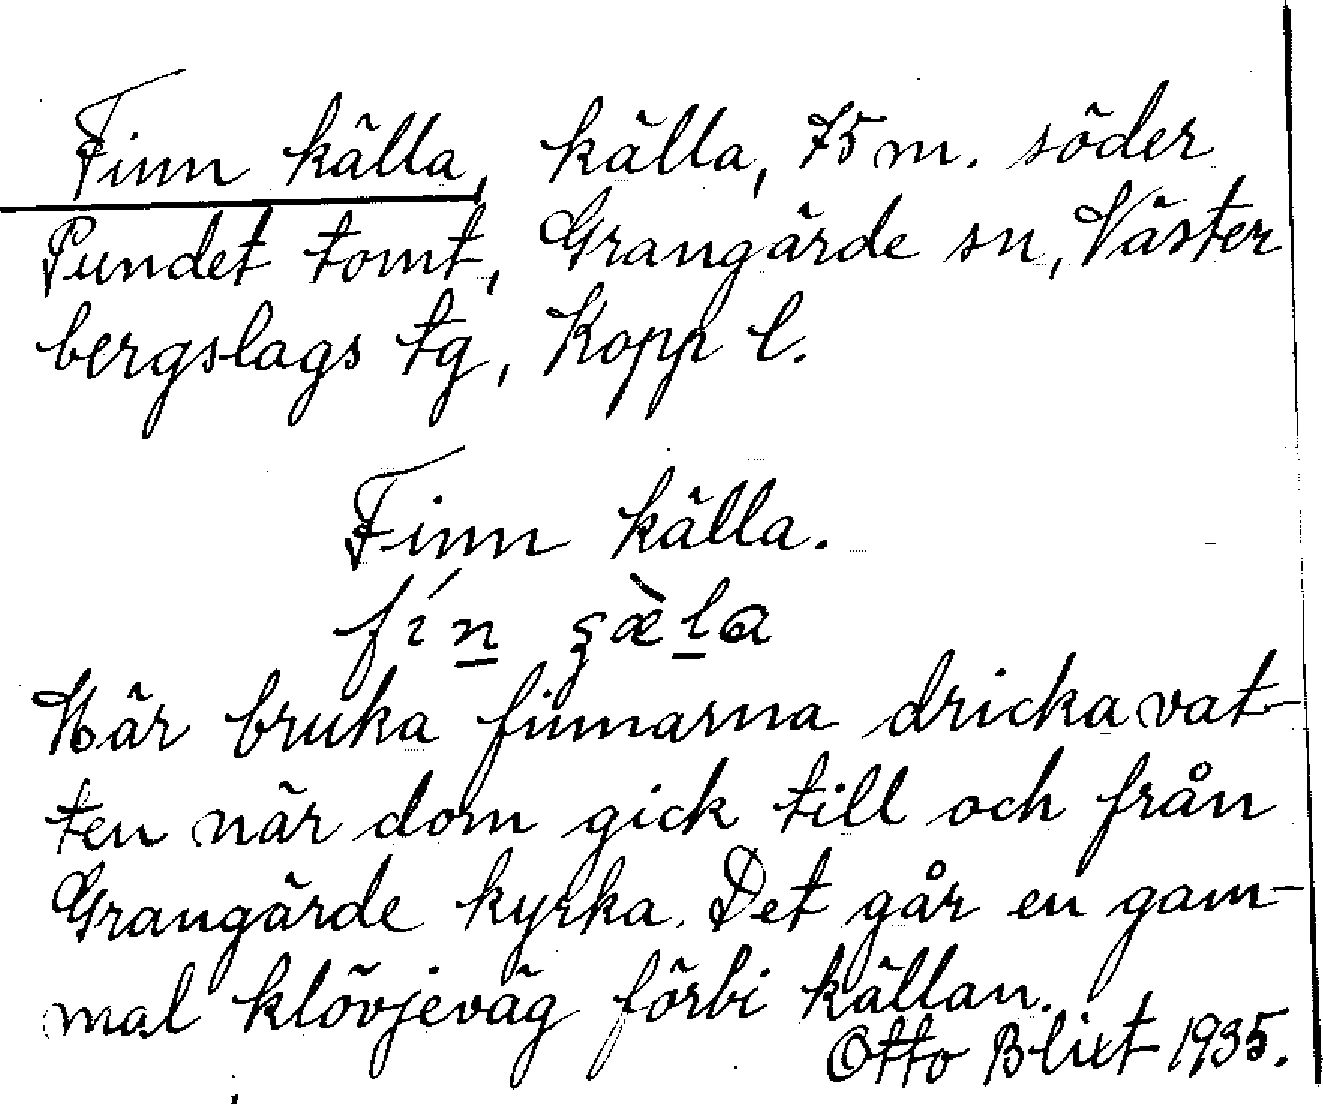 Finn källa, källa, 75 m. söder
Pundet tomt, Grangärde sn, Väster
bergslags tg, Kopp l.
Finn källa.
fín çæ̀la
Här bruka finnarna dricka vat-
ten när dom gick till och från
Grangärde kyrka. Det går en gam-
mal klövjeväg förbi källan.
Otto Blixt 1935.